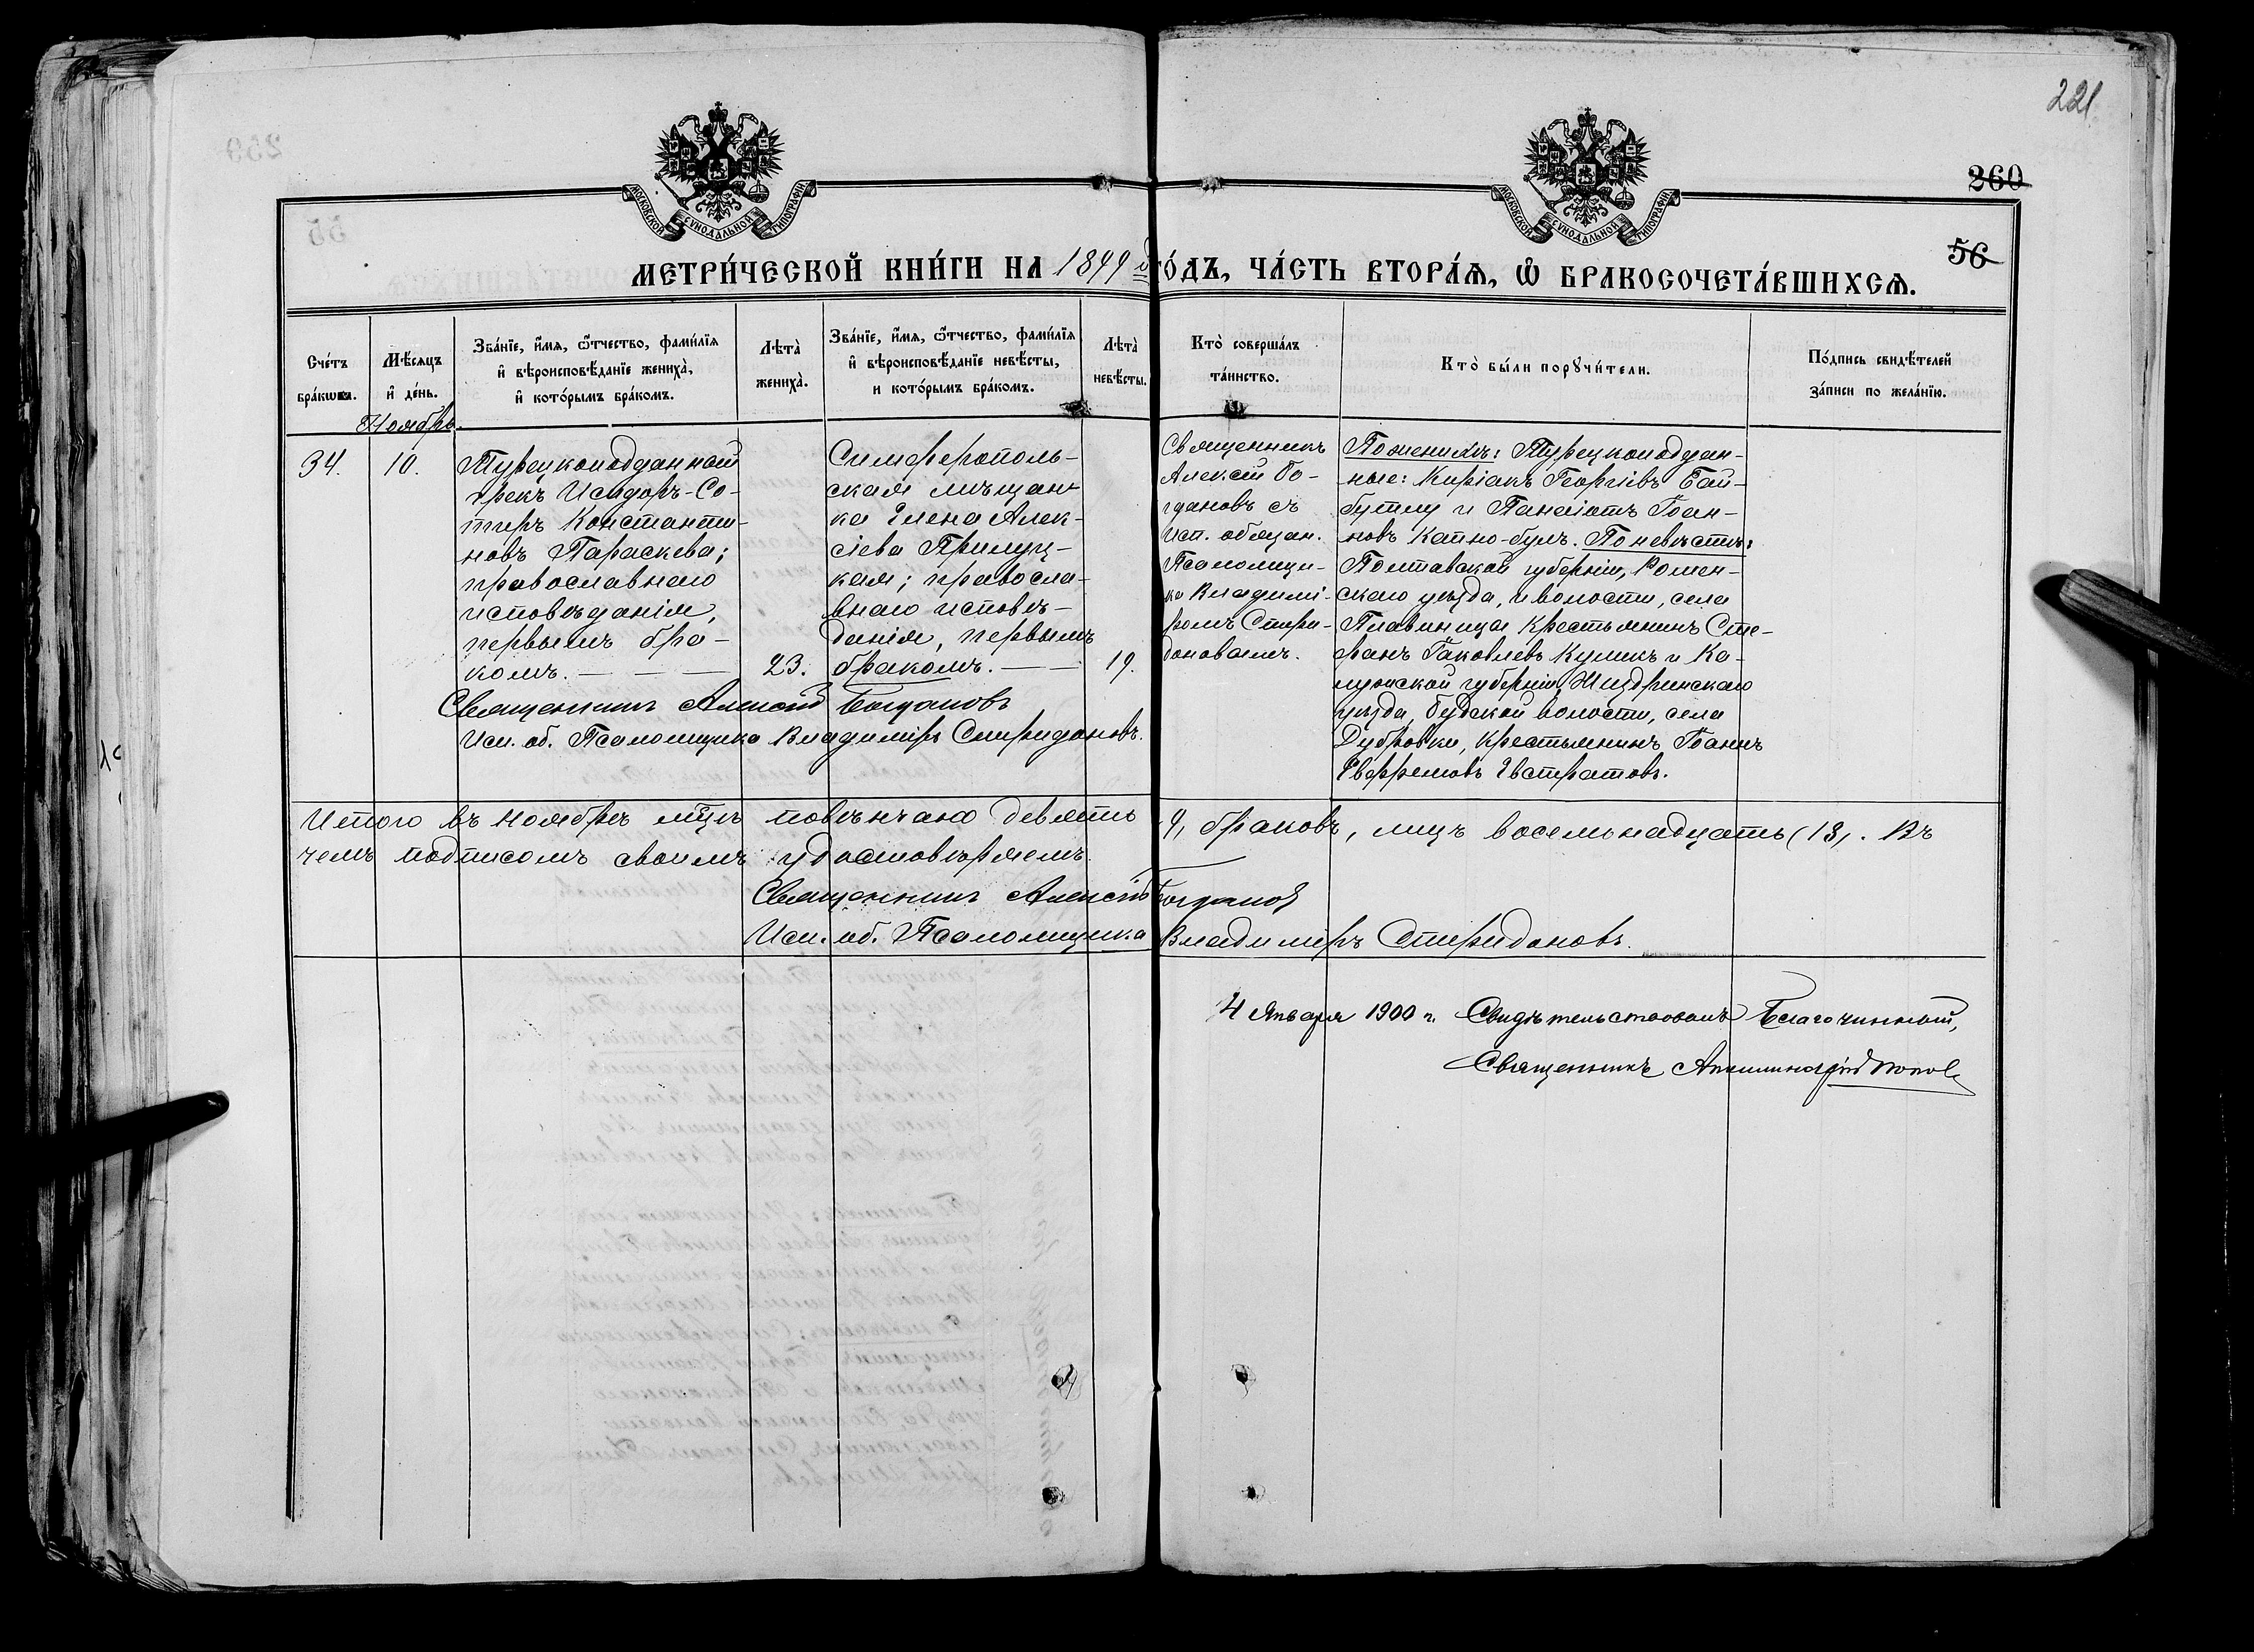 221.
260
56
МОСКОВСКОЙ СѴНОДАЛЬНОЙ ТИПОГРАФІИ
МОСКОВСКОЙ СѴНОДАЛЬНОЙ ТИПОГРАФІИ
МЕТРИ́ЧЕСКОЙ КНИ́ГИ НА 1899 й ГО́ДЪ, ЧА́СТЬ ВТОРА́Я, Ѡ БРАКОСОЧЕТА́ВШИХСЯ.
Сче́тъ
бра́кωвъ.
Мѣ́сяцъ
и҆ де́нь.
Зва́нїе, и҆́мя, ѻ҆́тчество, фами́лїя
и҆ вѣроисповѣ́данїе жениха̀,
и҆ кото́рымъ бра́комъ.
Лѣта̀
жениха̀.
Зва́нїе, и҆́мя, ѻ҆́тчество, фами́лїя
и҆ вѣроисповѣ́данїе невѣ́сты,
и кото́рымъ бра́комъ.
Лѣта̀
невѣ́сты.
Кто̀ соверша́лъ
та́инство.
Кто̀ бы́ли порꙋчи́тели.
По́дпись свидѣ́телей
за́писи по жела́нїю.
Ноябрь.
34.
10.
Турецкоподданный
грекъ Исидоръ-Со-
тиръ Константи-
новъ Параскева;
православнаго
исповѣданія,
первымъ бра-
комъ. — — —
23.
Симферополь-
ская мѣщан-
ка Елена Алек-
сіева Прилуц-
кая; правосла-
внаго исповѣ-
данія, первымъ
бракомъ. — —
19.
Священникъ
Алексій Бо-
гдановъ съ
исп. обязан.
Псаломщи-
ка Владимі-
ромъ Спири-
доновымъ.
По женихѣ: Турецкоподдан-
ные: Киріакъ Георгіевъ Бай-
бутлу и Панаіотъ Іоан-
новъ Капно-булъ. По невѣстѣ:
Полтавской губерніи, Ромен-
скаго уѣзда, и волости, села
Плавинища крестьянинъ Сте-
фанъ Іаковлевъ Куликъ и Ка-
лужской губерніи, Жиздринскаго
уѣзда, Будской волости, села
Дубровки, крестьянинъ Іоаннъ
Евфремовъ Евстратовъ.
Священникъ Алексій Богдановъ
Исп. об. Псаломщика Владиміръ Спиридоновъ.
Итого въ ноябрѣ м̃цѣ повѣнчано девять 9, браковъ, лицъ восемьнадцать (18). Въ
чемъ подписомъ своимъ удостовѣряемъ.
Священникъ Алексій Богдановъ
Исп. об. Псаломщика Владиміръ Спиридоновъ.
4 Января 1900 г. Свидѣтельствовалъ Благочинный,
Священникъ Апполинарій Поповъ